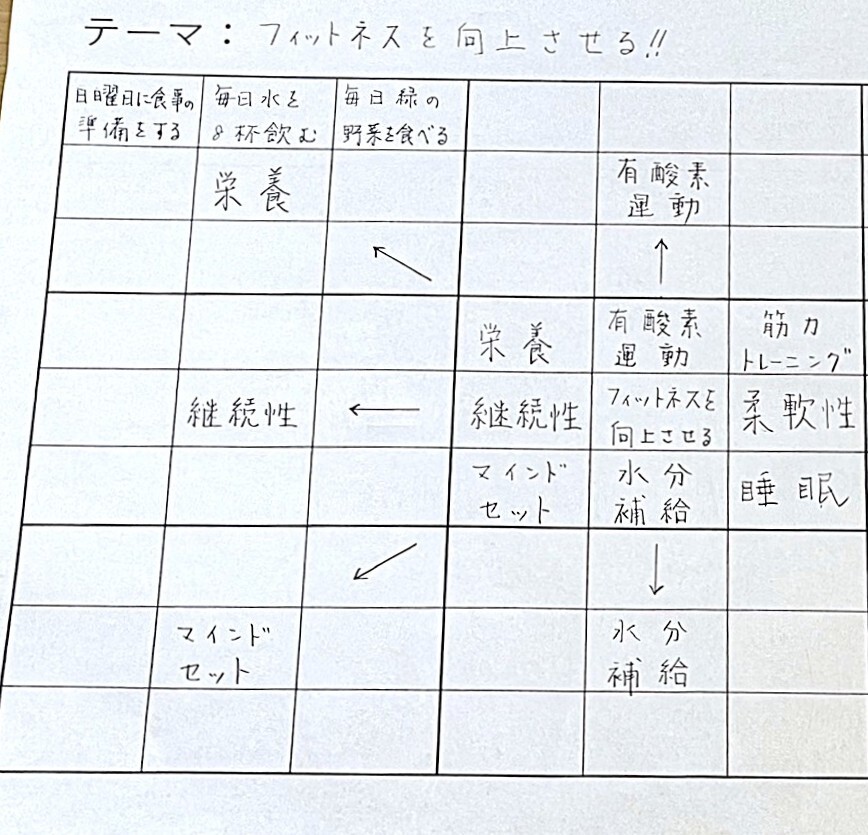 テーマ： フィットネスを向上させる!!
日曜日に食事の 毎日水を 毎日緑の
準備をする 8杯飲む 野菜を食べる
栄養 有酸素
運動
栄養 有酸素 筋力
運動 トレーニング
継続性 継続性 フィットネスを 柔軟性
向上させる
マインド 水分 睡眠
セット 補給
マインド 水分
セット 補給